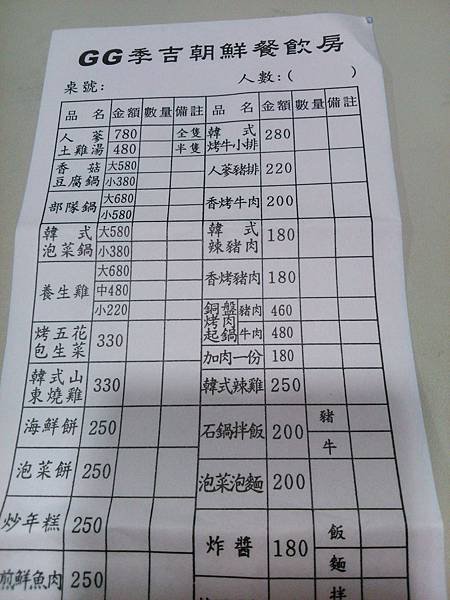 GG季吉朝鮮餐飲房
桌號: 人數:( )
品名 金額 數量 備註 品名 金額 數量 備註
人蔘土雞湯 780 全隻 韓式烤牛小排 280
480 半隻
香菇豆腐鍋 大580 人蔘豬排 220
小380
部隊鍋 大680 香烤牛肉 200
小580
韓式泡菜鍋 大580 韓式辣豬肉 180
小380
養生雞 大680 香烤豬肉 180
中480
小220 銅盤烤肉起鍋 豬肉 460
烤五花包生菜 330 牛肉 480
加肉一份 180
韓式山東燒雞 330 韓式辣雞 250
海鮮餅 250 石鍋拌飯 200 豬
牛
泡菜餅 250 泡菜泡麵 200
炒年糕 250 炸醬 180 飯
麵
煎鮮魚肉 250 拌